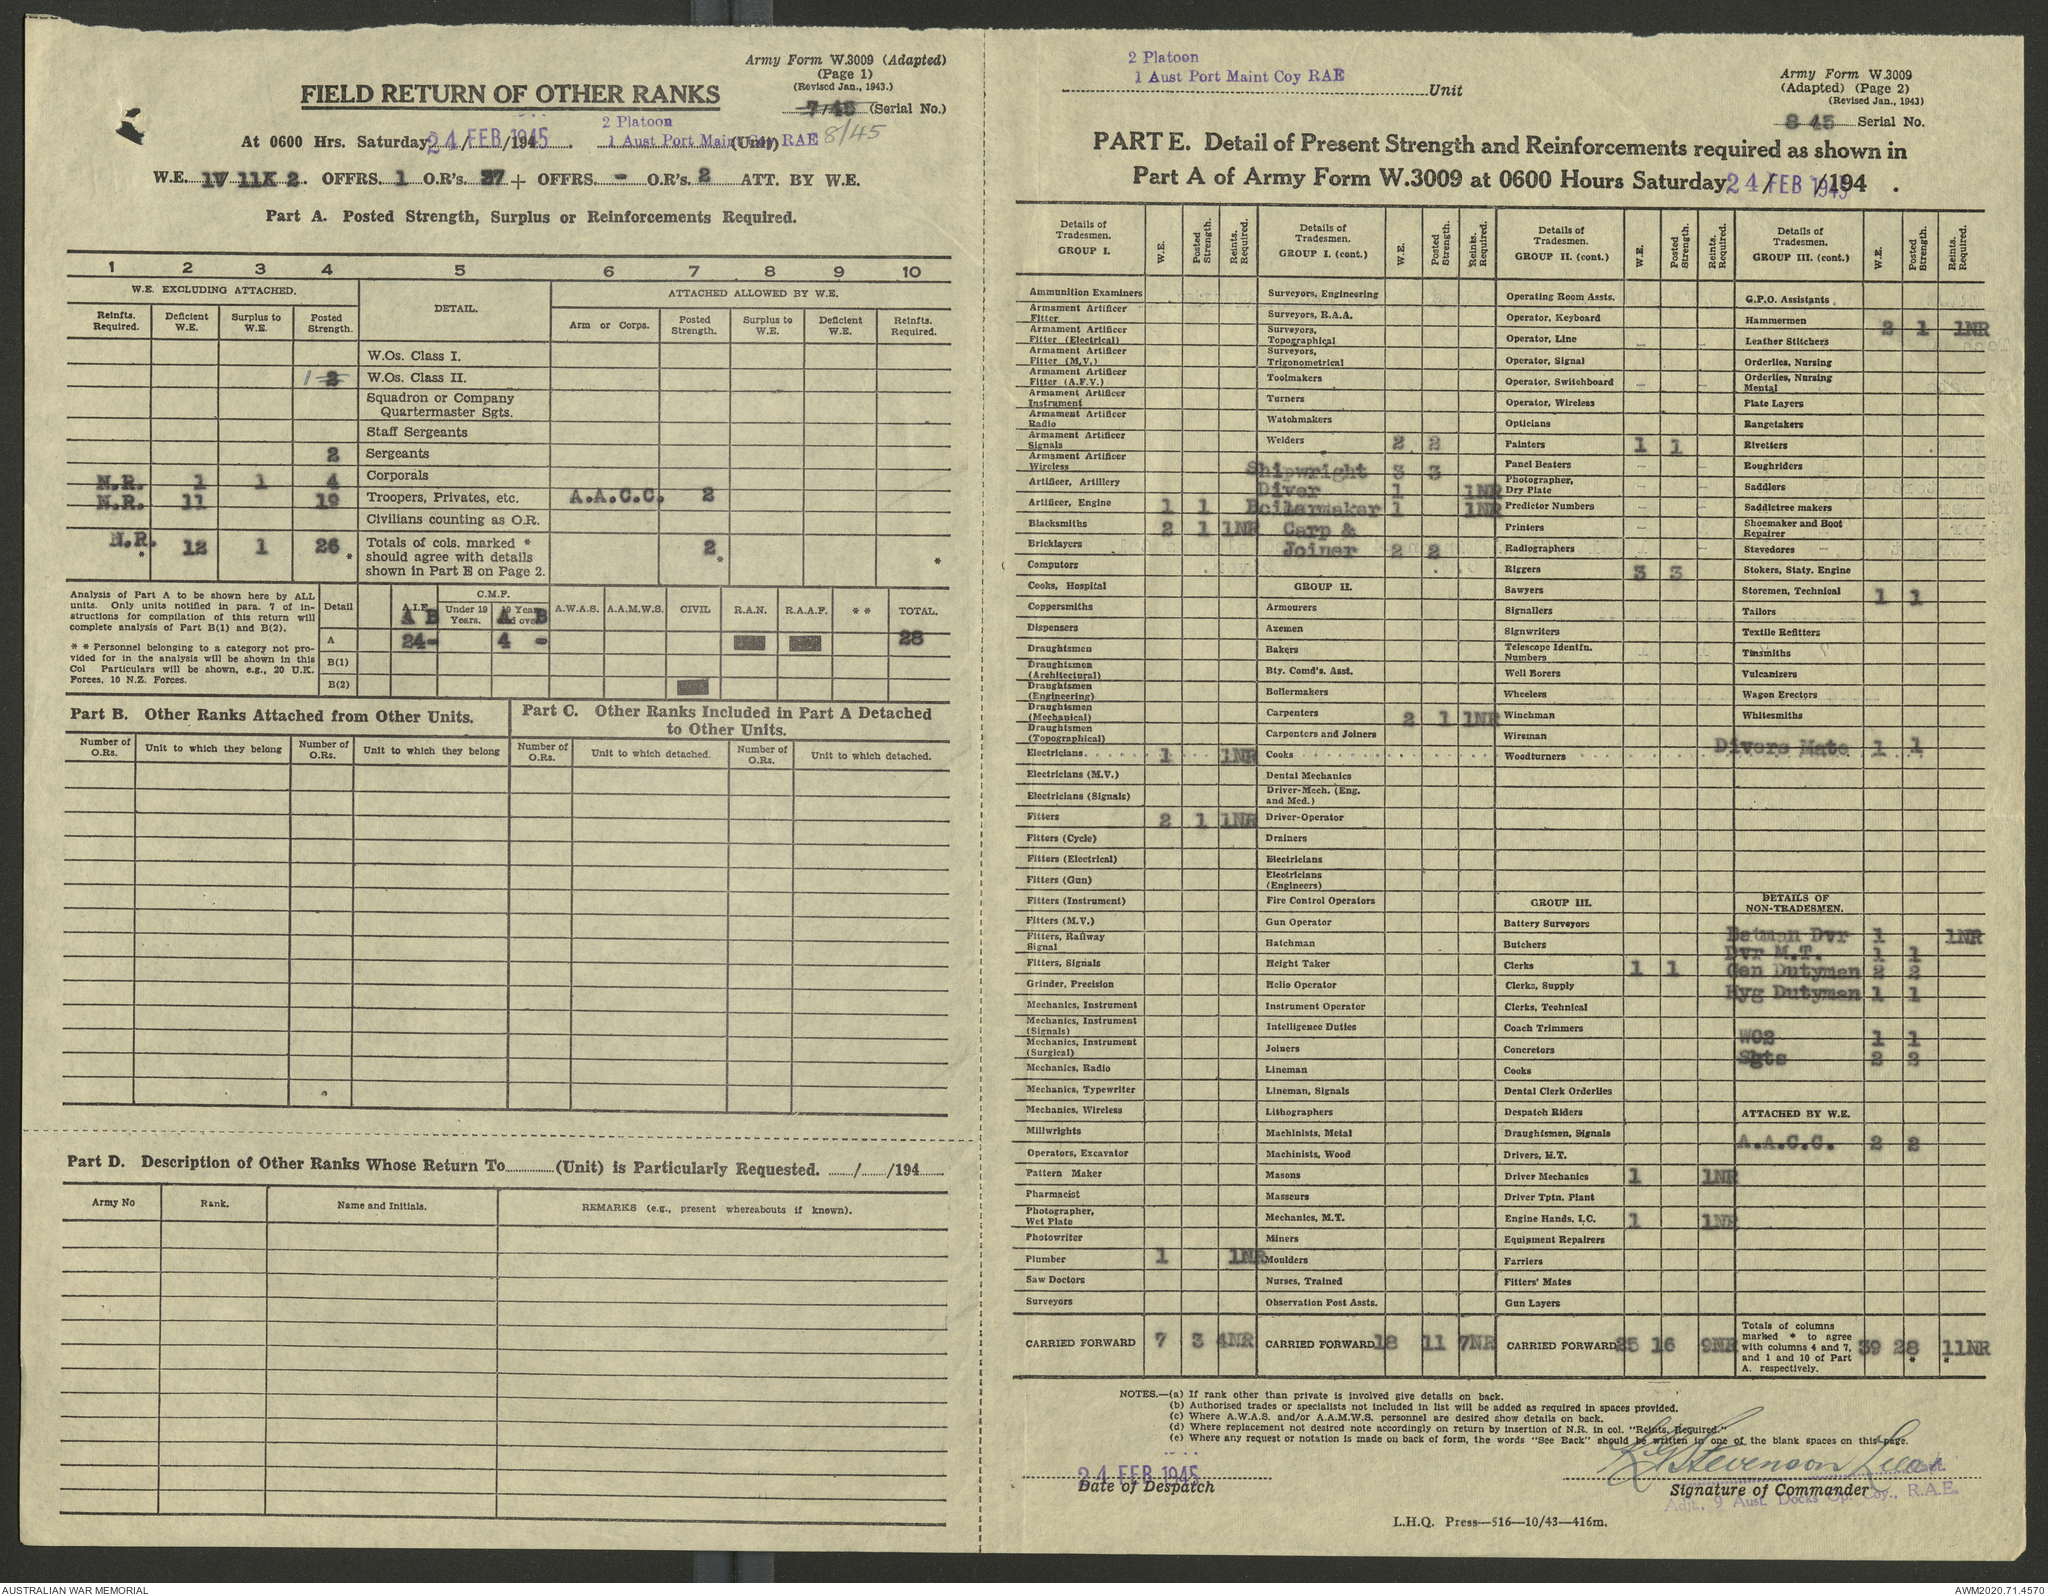 Army Form W.3009 (Adapted)
(Page 1)
(Revised Jan., 1943.)
FIELD RETURN OF OTHER RANKS
7/45 (Serial No.)
8/45
2 Platoon
At 0600 Hrs. Saturday 24/FEB/1945. 1 Aust Port Maint Coy RAE (Unit)
W.E. 1V 11K 2. OFFRS. 1 O.R's. 37 + OFFRS. - O.R's. 2 ATT. BY W.E.
Part A. Posted Strength, Surplus or Reinforcements Required.
1 2 3 4 5 6 7 8 9 10
W.E. EXCLUDING ATTACHED. DETAIL. ATTACHED ALLOWED BY W.E.
Reinfts. Required. Deficient W.E. Surplus to W.E. Posted Strength. Arm or Corps. Posted Strength. Surplus to W.E. Deficient W.E. Reinfts. Required.
W.Os. Class I.
1 2 W.Os. Class II.
Squadron or Company
Quartermaster Sgts.
Staff Sergeants
2 Sergeants
N.R. 1 1 4 Corporals
N.R. 11 19 Troopers, Privates, etc. A.A.C.C. 2
Civilians counting as O.R.
N.R. * 12 1 26 * Totals of cols. marked * 2 * *
should agree with details
shown in Part E on Page 2.
Analysis of Part A to be shown here by ALL
units. Only units notified in para. 7 of in-
structions for compilation of this return will
complete analysis of Part B(1) and B(2).
* * Personnel belonging to a category not pro-
vided for in the analysis will be shown in this
Col Particulars will be shown, e.g., 20 U.K.
Forces, 10 N.Z. Forces.
Detail A.I.F. C.M.F. A.W.A.S. A.A.M.W.S. CIVIL R.A.N. R.A.A.F. * * TOTAL.
A B Under 19 Years. 19 Years and over A B
A 24- 4 - 28
B(1)
B(2)
Part B. Other Ranks Attached from Other Units.
Part C. Other Ranks Included in Part A Detached
to Other Units.
Number of O.Rs. Unit to which they belong Number of O.Rs. Unit to which they belong Number of O.Rs. Unit to which detached. Number of O.Rs. Unit to which detached.
Part D. Description of Other Ranks Whose Return To............(Unit) is Particularly Requested. ....../....../194......
Army No Rank. Name and Initials. REMARKS (e.g., present whereabouts if known).
2 Platoon
1 Aust Port Maint Coy RAE Unit
Army Form W.3009
(Adapted) (Page 2)
(Revised Jan., 1943)
8 45 Serial No.
PART E. Detail of Present Strength and Reinforcements required as shown in
Part A of Army Form W.3009 at 0600 Hours Saturday 24/FEB/1945.
Details of Tradesmen. GROUP I. W.E. Posted Strength. Reints. Required.
Ammunition Examiners
Armament Artificer Fitter
Armament Artificer Fitter (Electrical)
Armament Artificer Fitter (M.V.)
Armament Artificer Fitter (A.F.V.)
Armament Artificer Instrument
Armament Artificer Radio
Armament Artificer Signals
Armament Artificer Wireless
Artificer, Artillery
Artificer, Engine 1 1
Blacksmiths 2 1 1NR
Bricklayers
Computors
Cooks, Hospital
Coppersmiths
Dispensers
Draughtsmen
Draughtsmen (Architectural)
Draughtsmen (Engineering)
Draughtsmen (Mechanical)
Draughtsmen (Topographical)
Electricians 1 1NR
Electricians (M.V.)
Electricians (Signals)
Fitters 2 1 1NR
Fitters (Cycle)
Fitters (Electrical)
Fitters (Gun)
Fitters (Instrument)
Fitters (M.V.)
Fitters, Railway Signal
Fitters, Signals
Grinder, Precision
Mechanics, Instrument
Mechanics, Instrument (Signals)
Mechanics, Instrument (Surgical)
Mechanics, Radio
Mechanics, Typewriter
Mechanics, Wireless
Millwrights
Operators, Excavator
Pattern Maker
Pharmacist
Photographer, Wet Plate
Photowriter
Plumber 1 1NR
Saw Doctors
Surveyors
CARRIED FORWARD 7 3 4NR
Details of Tradesmen. GROUP I. (cont.) W.E. Posted Strength. Reints. Required.
Surveyors, Engineering
Surveyors, R.A.A.
Surveyors, Topographical
Surveyors, Trigonometrical
Toolmakers
Turners
Watchmakers
Welders 2 2
Shipwright 3 3
Diver 1 1NR
Boilermaker 1 1NR
Carp &
Joiner 2 2
GROUP II.
Armourers
Axemen
Bakers
Bty. Comd's. Asst.
Boilermakers
Carpenters 2 1 1NR
Carpenters and Joiners
Cooks
Dental Mechanics
Driver-Mech. (Eng. and Med.)
Driver-Operator
Drainers
Electricians
Electricians (Engineers)
Fire Control Operators
Gun Operator
Hatchman
Height Taker
Helio Operator
Instrument Operator
Intelligence Duties
Joiners
Lineman
Lineman, Signals
Lithographers
Machinists, Metal
Machinists, Wood
Masons
Masseurs
Mechanics, M.T.
Miners
Moulders
Nurses, Trained
Observation Post Assts.
CARRIED FORWARD 18 11 7NR
Details of Tradesmen. GROUP II. (cont.) W.E. Posted Strength. Reints. Required.
Operating Room Assts.
Operator, Keyboard
Operator, Line
Operator, Signal
Operator, Switchboard
Operator, Wireless
Opticians
Painters 1 1
Panel Beaters
Photographer, Dry Plate
Predictor Numbers
Printers
Radiographers
Riggers 3 3
Sawyers
Signallers
Signwriters
Telescope Identfn. Numbers
Well Borers
Wheelers
Winchman
Wireman
Woodturners
GROUP III.
Battery Surveyors
Butchers
Clerks 1 1
Clerks, Supply
Clerks, Technical
Coach Trimmers
Concretors
Cooks
Dental Clerk Orderlies
Despatch Riders
Draughtsmen, Signals
Drivers, M.T.
Driver Mechanics 1 1NR
Driver Tptn. Plant
Engine Hands, I.C. 1 1NR
Equipment Repairers
Farriers
Fitters' Mates
Gun Layers
CARRIED FORWARD 25 16 9NR
Details of Tradesmen. GROUP III. (cont.) W.E. Posted Strength. Reints. Required.
G.P.O. Assistants
Hammermen 2 1 1NR
Leather Stitchers
Orderlies, Nursing
Orderlies, Nursing Mental
Plate Layers
Rangetakers
Rivetters
Roughriders
Saddlers
Saddletree makers
Shoemaker and Boot Repairer
Stevedores
Stokers, Staty. Engine
Storemen, Technical 1 1
Tailors
Textile Refitters
Tinsmiths
Vulcanizers
Wagon Erectors
Whitesmiths
Divers Mate 1 1
DETAILS OF NON-TRADESMEN.
Batman Dvr 1 1NR
Dvr M.T. 1 1
Gen Dutymen 2 2
Hyg Dutymen 1 1
WO2 1 1
Sgts 2 2
ATTACHED BY W.E.
A.A.C.C. 2 2
Totals of columns marked * to agree with columns 4 and 7, and 1 and 10 of Part A. respectively. 39 28 * 11NR *
NOTES.—(a) If rank other than private is involved give details on back.
(b) Authorised trades or specialists not included in list will be added as required in spaces provided.
(c) Where A.W.A.S. and/or A.A.M.W.S. personnel are desired show details on back.
(d) Where replacement not desired note accordingly on return by insertion of N.R. in col. "Reints. Required."
(e) Where any request or notation is made on back of form, the words "See Back" should be written in one of the blank spaces on this page.
24 FEB 1945
Date of Despatch
Stevenson Lieut
Signature of Commander
Adjt., 9 Aust. Docks Op. Coy., R.A.E.
L.H.Q. Press—516—10/43—416m.
AUSTRALIAN WAR MEMORIAL
AWM2020.71.4570